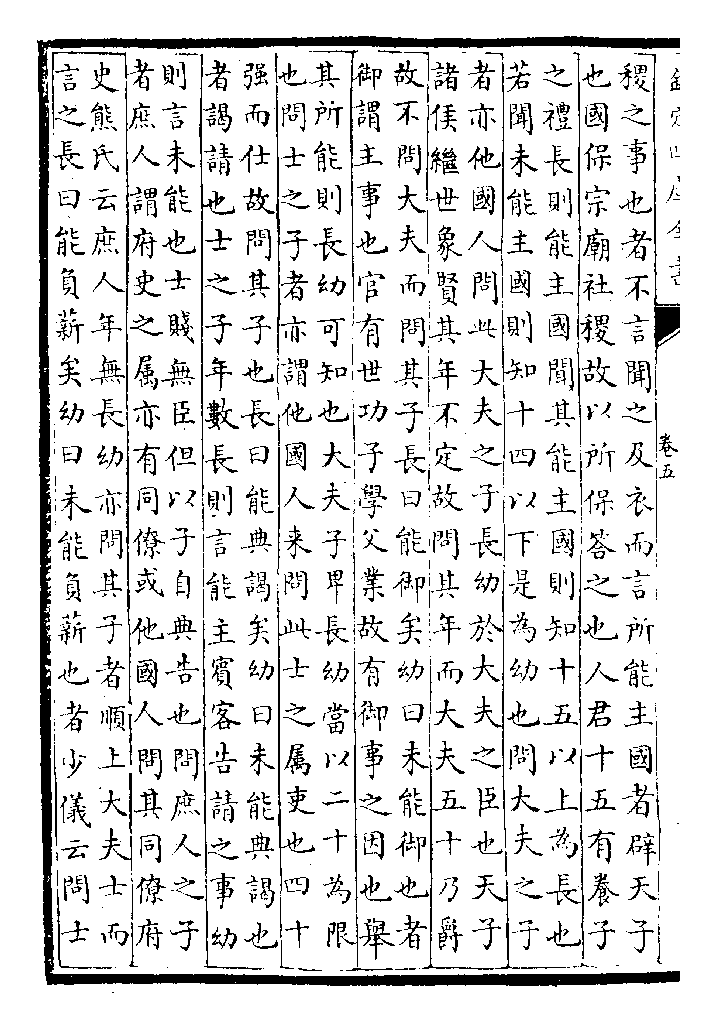 欽定四庫全書
卷五
稷之事也者不言聞之及衣而言所能主國者辟天子
也國保宗廟社稷故以所保答之也人君十五有養子
之禮長則能主國聞其能主國則知十五以上為長也
若聞未能主國則知十四以下是為幼也問大夫之子
者亦他國人問此大夫之子長幼於大夫之臣也天子
諸侯繼世象賢其年不定故問其年而大夫五十乃爵
故不問大夫而問其子長曰能御矣幼曰未能御也者
御謂主事也官有世功子學父業故有御事之因也舉
其所能則長幼可知也大夫子卑長幼當以二十為限
也問士之子者亦謂他國人来問此士之属吏也四十
强而仕故問其子也長曰能典謁矣幼曰未能典謁也
者謁請也士之子年數長則言能主賓客告請之事幼
則言未能也士賤無臣但以子自典告也問庶人之子
者庶人謂府史之属亦有同僚或他國人問其同僚府
史熊氏云庶人年無長幼亦問其子者順上大夫士而
言之長曰能負薪矣幼曰未能負薪也者少儀云問士